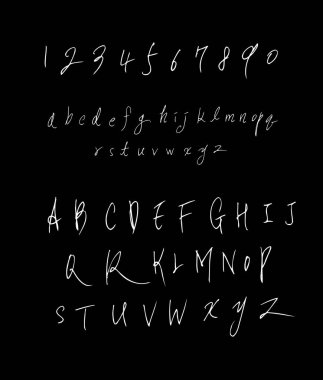 1234567890
abcdefghijklmnopq
rstuvwxyz
ABCDEFGHIJ
QRKLMNOP
STUVWXYZ